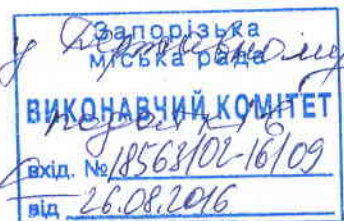 Запорізька
міська рада
ВИКОНАВЧИЙ КОМІТЕТ
вхід. № 18563/02-16/09
від 26.08.2016